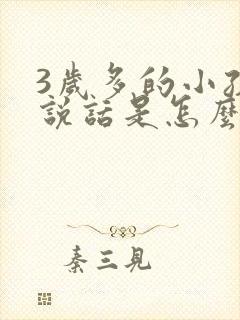 3歲多的小孩
說話是怎麼
秦三見